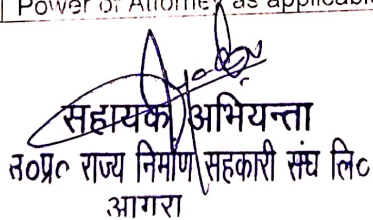 Power of Attorney as applicable
सहायक अभियन्ता
उ०प्र० राज्य निर्माण सहकारी संघ लि०
आगरा